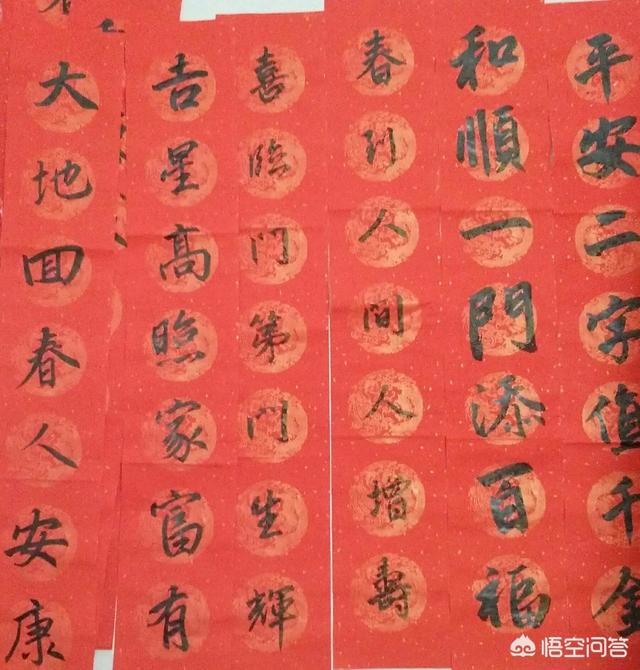 平安二字值千金
和順一門添百福
春到人間人增壽
喜臨门第门生輝
吉星高照家富有
大地回春人安康
悟空问答